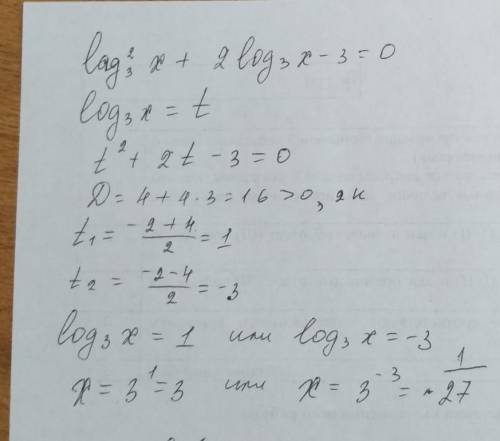 log₃² x + 2 log₃ x - 3 = 0
log₃ x = t
t² + 2t - 3 = 0
D = 4 + 4 · 3 = 16 > 0, 2 к
t₁ = (-2 + 4)/2 = 1
t₂ = (-2 - 4)/2 = -3
log₃ x = 1 или log₃ x = -3
x = 3¹ = 3 или x = 3⁻³ = 1/27